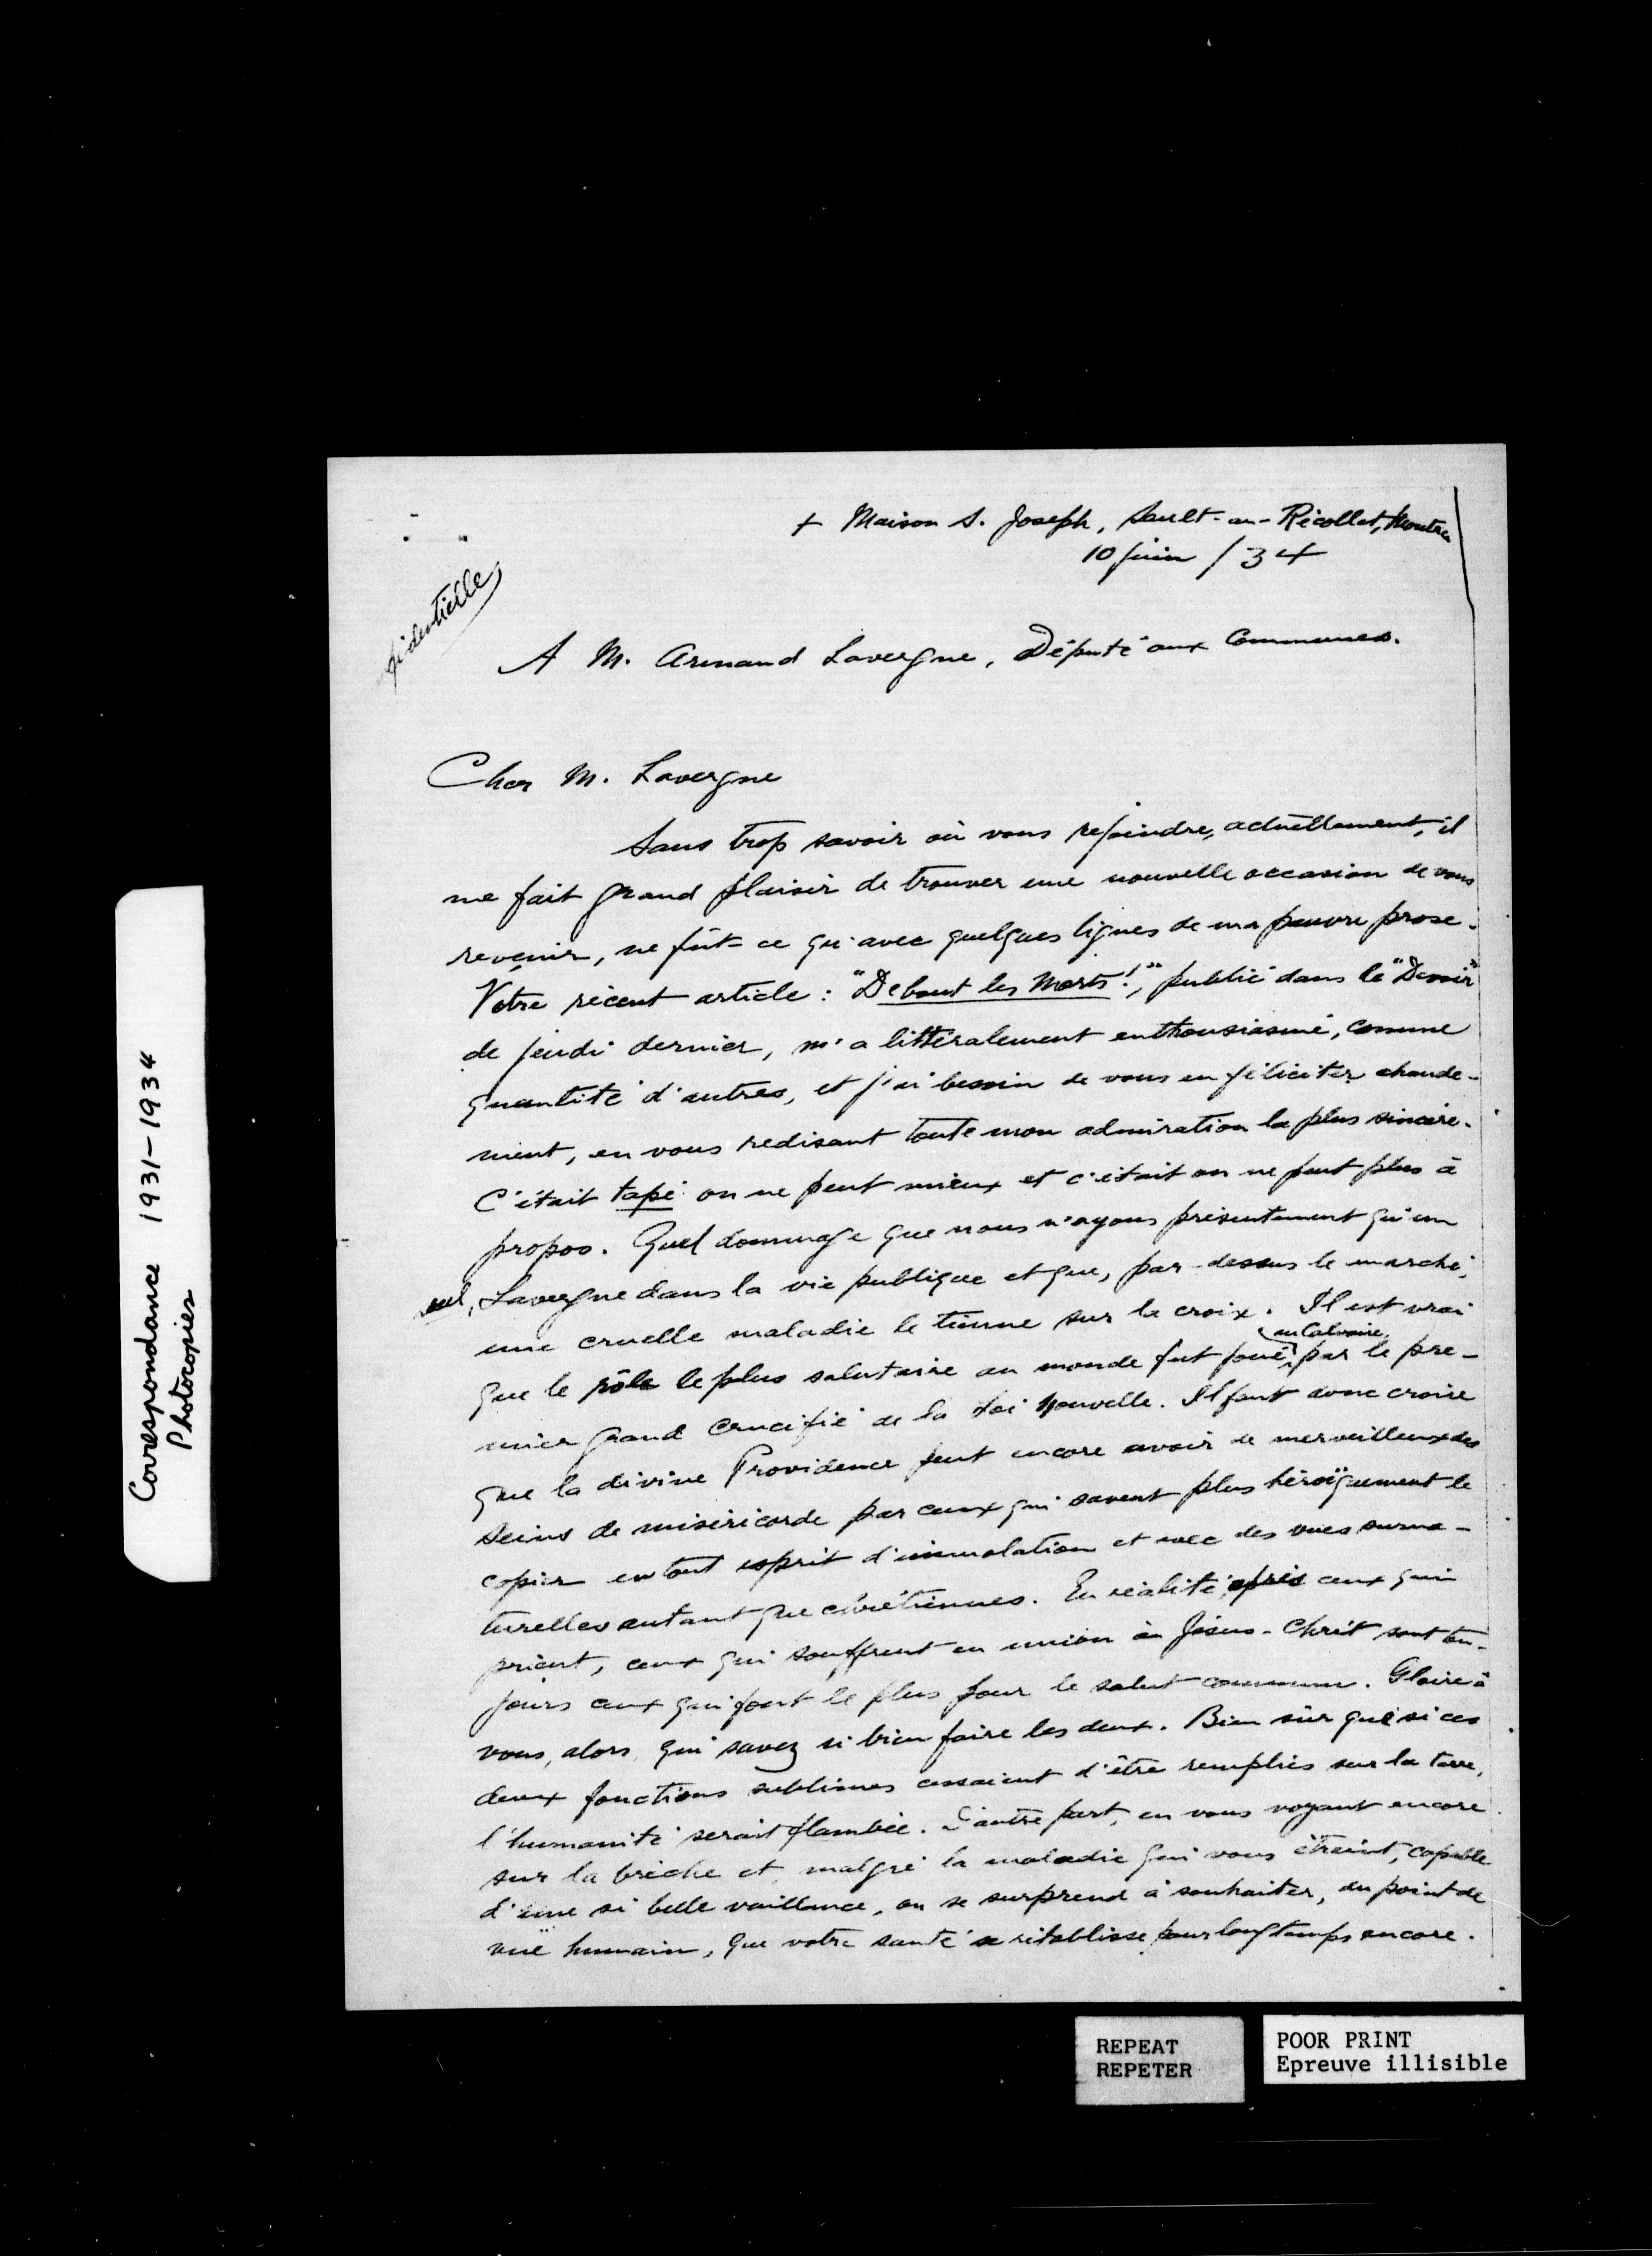 Correspondance 1931-1934
Photocopies
+ Maison S. Joseph, Sault-au-Récollet,
10 juin / 34
fidentielle
A M. Armand Lavergne, Député aux Communes.
Cher M. Lavergne
Sans trop savoir où vous rejoindre, actuellement, il
me fait grand plaisir de trouver une nouvelle occasion de vous
revenir, ne fût-ce qu'avec quelques lignes de ma pauvre prose.
Votre récent article : "Debout les Morts!", publié dans le "Devoir"
de jeudi dernier, m'a littéralement enthousiasmé, comme
quantité d'autres, et j'ai besoin de vous en féliciter chaude-
ment, en vous redisant toute mon admiration la plus sincère.
C'était tapé on ne peut mieux et c'était on ne peut plus à
propos. Quel dommage que nous n'ayons présentement qu'un
seul, Lavergne dans la vie publique et que, par-dessus le marché,
une cruelle maladie le tienne sur la croix. Il est vrai
que le rôle le plus salutaire au monde fut joué au Calvaire, par le pre-
mier grand Crucifié de la Loi Nouvelle. Il faut donc croire
que la divine Providence peut encore avoir de merveilleux des
seins de miséricorde par ceux qui savent plus héroïquement le
copier en tout esprit d'immolation et avec des vues surna-
turelles autant que chrétiennes. En réalité, après ceux qui
prient, ceux qui souffrent en union à Jésus-Christ sont tou-
jours ceux qui font le plus pour le salut commun. Gloire à
vous, alors, qui savez si bien faire les deux. Bien sûr que si ces
deux fonctions sublimes cessaient d'être remplies sur la terre,
l'humanité serait flambée. D'autre part, en vous voyant encore
sur la brèche et, malgré la maladie qui vous étreint, capable
d'une si belle vaillance, on se surprend à souhaiter, du point de
vuë humain, que votre santé se rétablisse pour longtemps encore.
REPEAT
REPETER
POOR PRINT
Epreuve illisible